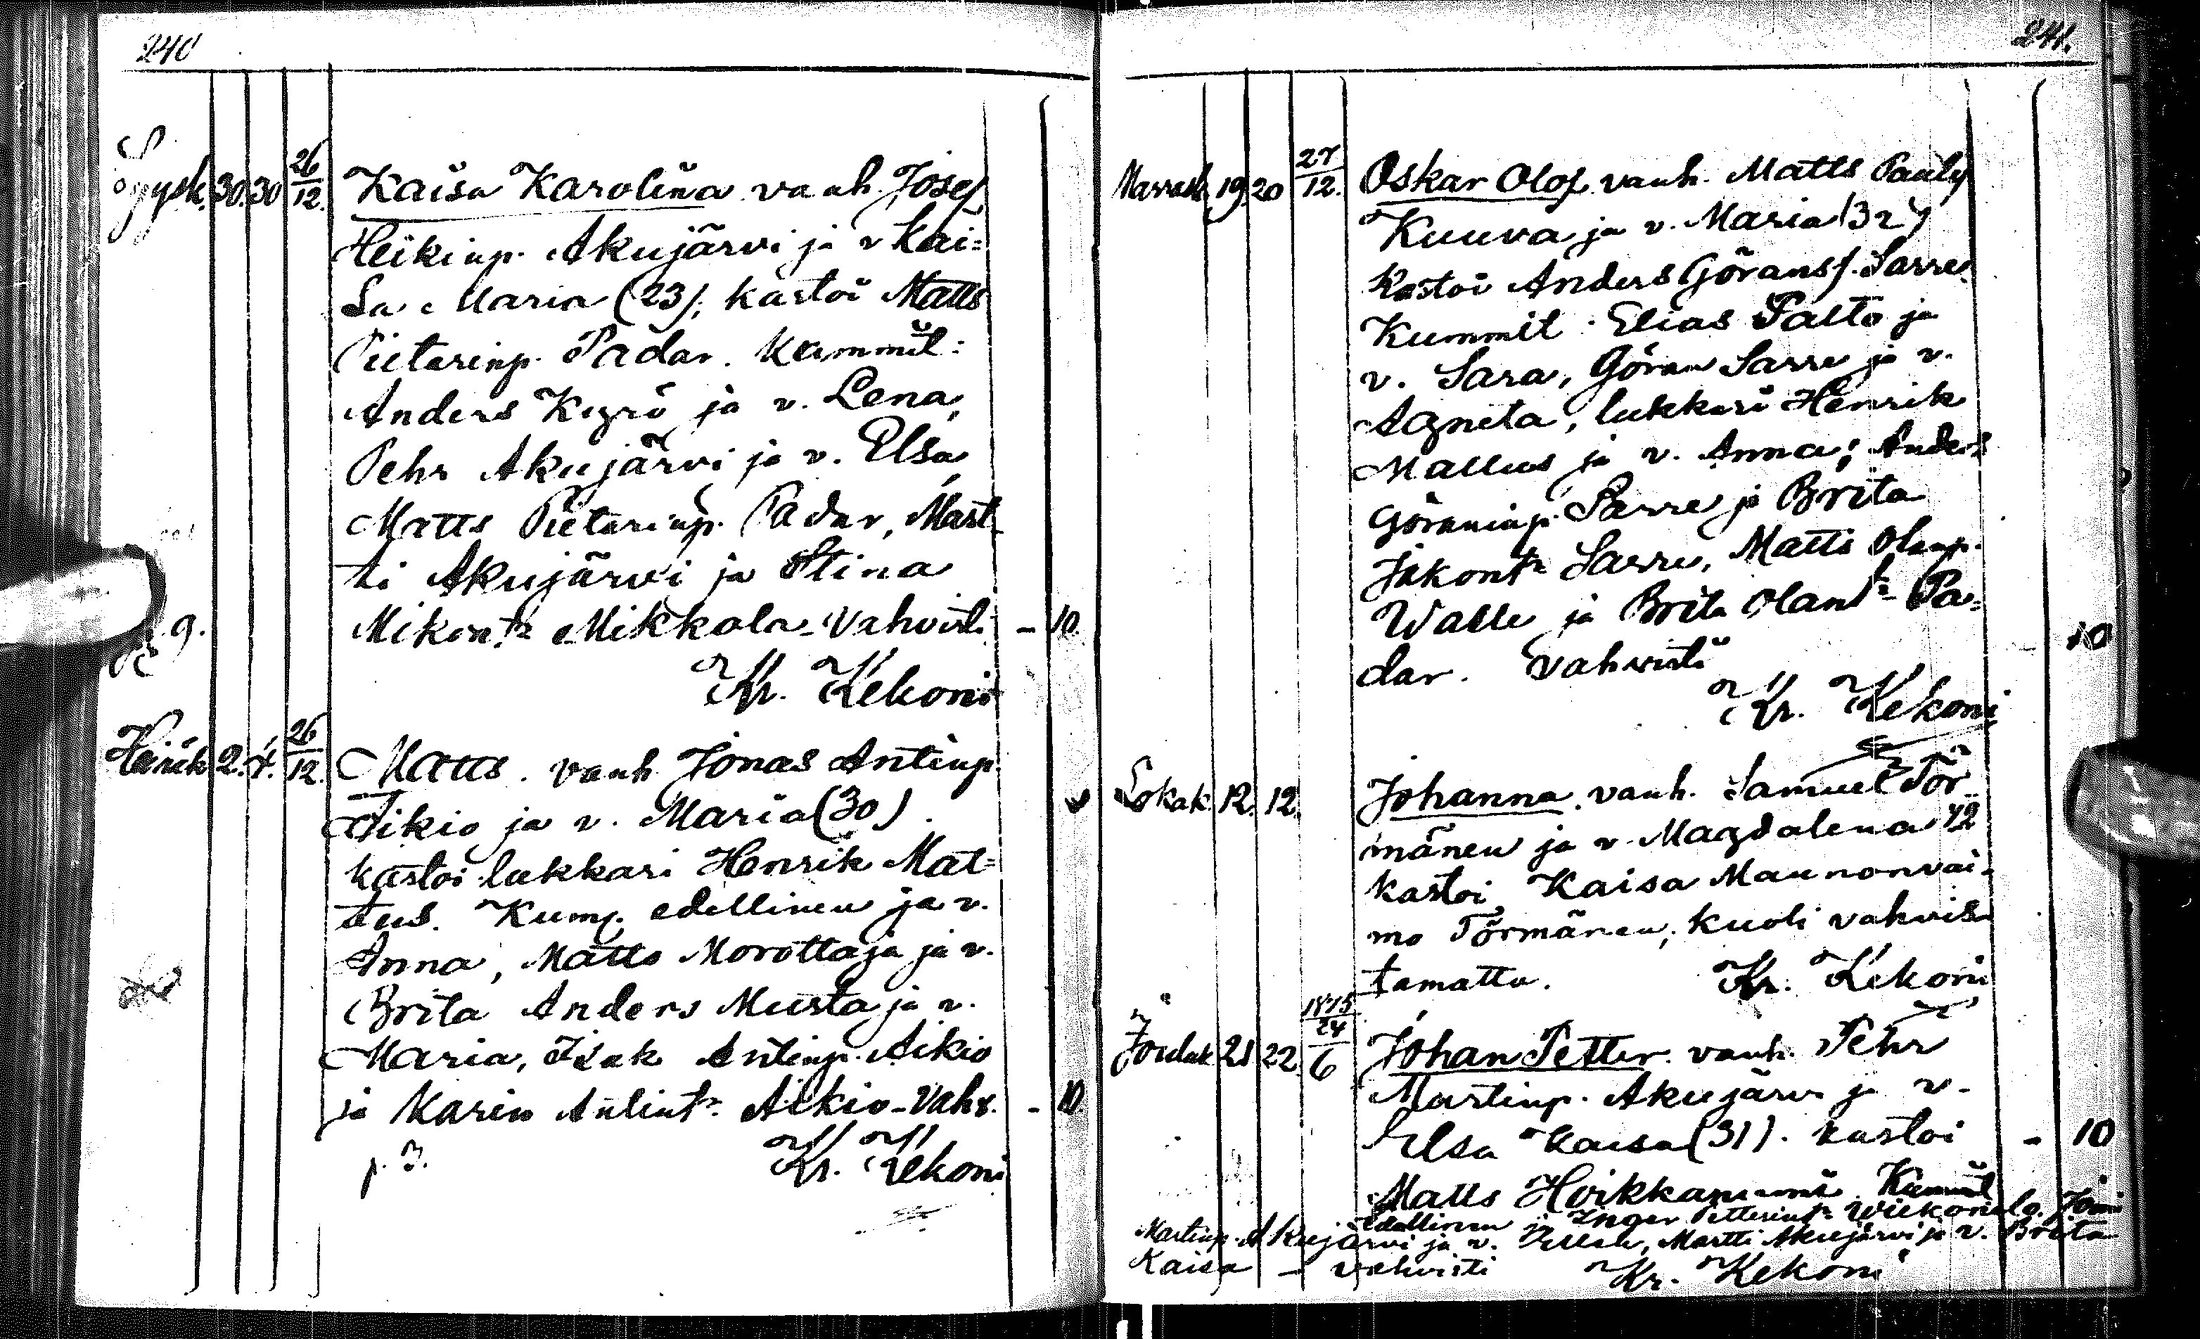 240
Syysk. 30. 30 26/12. Kaisa Karolina vanh. Josef
Heikinp. Akujärvi ja v. Kai=
sa Maria (23); kastoi Matts
Pietarinp. Padar. Kummit:
Anders Kyrö ja v. Lena,
Pehr Akujärvi ja v. Elsa,
Matts Pietarinp. Padar, Mart-
ti Akujärvi ja Stina
Mikont:r Mikkola - Vahvisti - 10.
Kr. Kekoni
Heinäk 2. 4. 26/12. Matts. vanh. Jonas Antinp.
Aikio ja v. Maria (30).
kastoi lukkari Henrik Mat=
teus. Kum. edellinen ja v.
Anna, Matts Morottaja ja v.
Brita Anders Musta ja v.
Maria, Isak Antinp. Aikio
ja Karin Antint:r Aikio - Vahv. - 10
p. 3. Kr. Kekoni
241.
Marrask. 19 20 27/12. Oskar Olof vanh. Matts Paulp
Kuuva ja v. Maria (32)
Kastoi Anders Göransp. Sarre.
Kummit: Elias Palto ja
v. Sara, Göran Sarre ja v.
Agneta, lukkari Henrik
Matteus ja v. Anna; Anders
Göraninp. Sarre ja Brita
Jakont:r Sarre, Matti Olanp.
Walle ja Brita Olant:r Pa=
dar. vahvisti 10
Kr. Kekoni
Lokak. 12. 12. Johanna. vanh. Samuel Tör-
mänen ja v. Magdalena 42
kastoi Kaisa Maunonvai-
mo Törmänen; kuoli vahvis
tamatta. Kr. Kekoni
Jouluk 21 22. 1875 24/6 Johan Petter. vanh. Pehr
Martinp. Akujärvi ja v.
Elsa Kaisa (31). kastoi - 10
Matts Hoikkaniemi. Kummit
edellinen ja Inger Petterint:r
Martinp. Akujärvi ja v. Martti Akujärvi ja v. Brita
Kaisa - vahvisti Kr. Kekoni